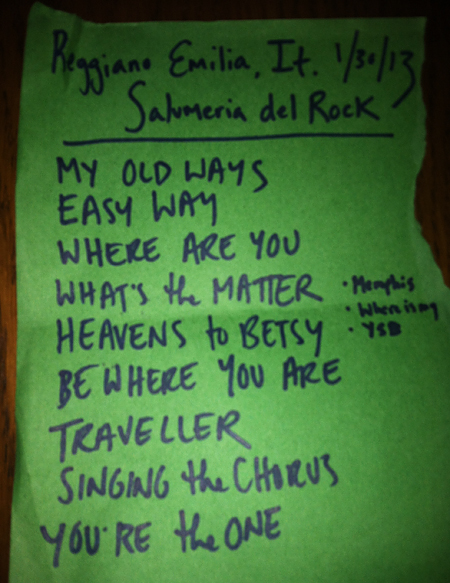 Reggiano Emilia, It. 1/30/13
Salumeria del Rock
MY OLD WAYS
EASY WAY
WHERE ARE YOU
WHAT'S the MATTER
HEAVENS to BETSY
BE WHERE YOU ARE
TRAVELLER
SINGING the CHORUS
YOU'RE the ONE
• Memphis
• When is my
• YSB